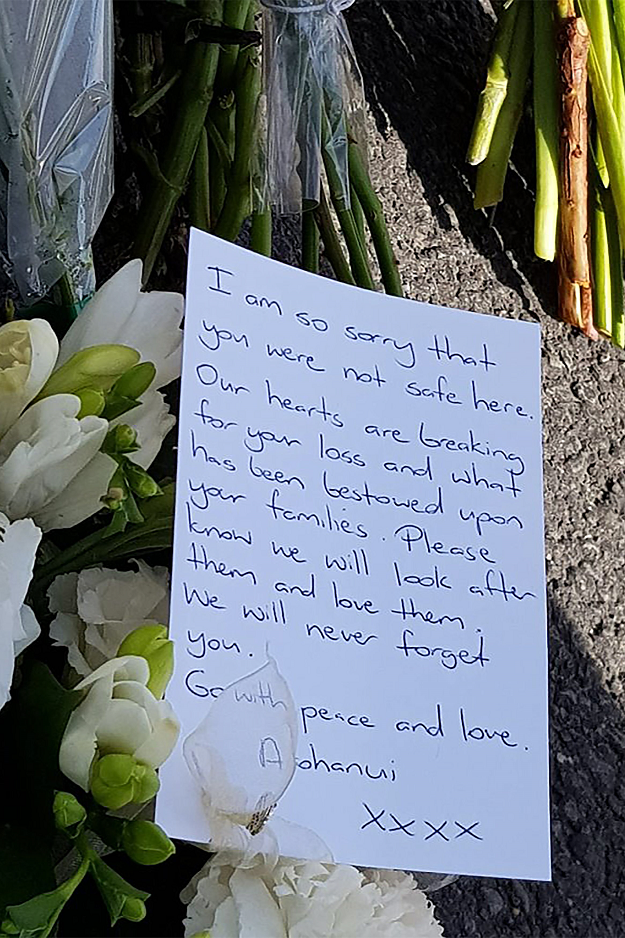 I am so sorry that
you were not safe here.
Our hearts are breaking
for your loss and what
has been bestowed upon
your families. Please
know we will look after
them and love them.
We will never forget
you.
Go with peace and love.
Arohanui
xxxx